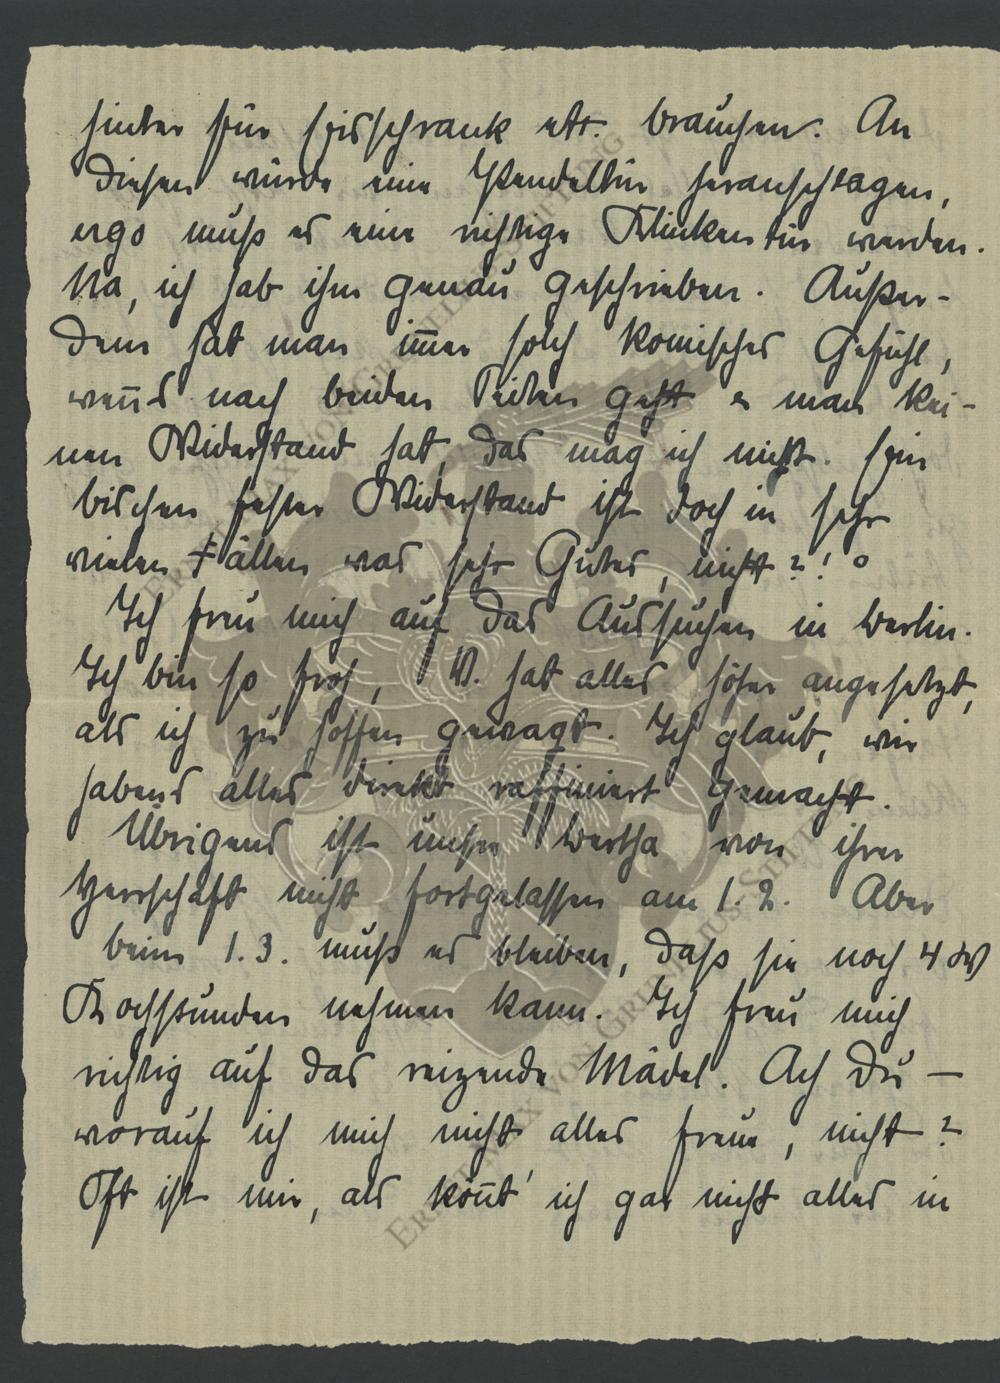 hinter für Eisschrank etc. brauchen. An
diesen würde eine Pendeltür heranschlagen,
ergo muß es eine richtige Klinkentür werden.
Na, ich hab ihm genau geschrieben. Außer-
dem hat man im̅er solch komisches Gefühl,
wen̅s nach beiden Seiten geht u man kei-
nen Widerstand hat, das mag ich nicht. Ein
bischen fester Widerstand ist doch in sehr
vielen Fällen was sehr Gutes, nicht?!
Ich freu mich auf das Aussuchen in Berlin.
Ich bin so froh, V. hat alles höher angesetzt,
als ich zu hoffen gewagt. Ich glaub, wir
habens alles direkt raffiniert gemacht.
Übrigens ist unsre Bertha von ihrer
Herrschaft nicht fortgelassen am 1.2. Aber
beim 1.3. muß es bleiben, daß sie noch 4 W
Kochstunden nehmen kann. Ich freu mich
richtig auf das reizende Mädel. Ach Du —
worauf ich mich nicht alles freue, nicht?
Oft ist mir, als kön̅t' ich gar nicht alles in